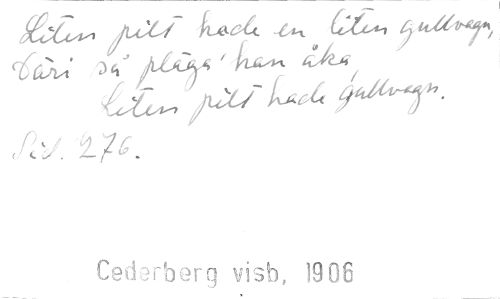 Liten pilt hade en liten gullvagn,
däri så pläga' han åka,
Liten pilt hade gullvagn.
Sid. 276.
Cederberg visb, 1906